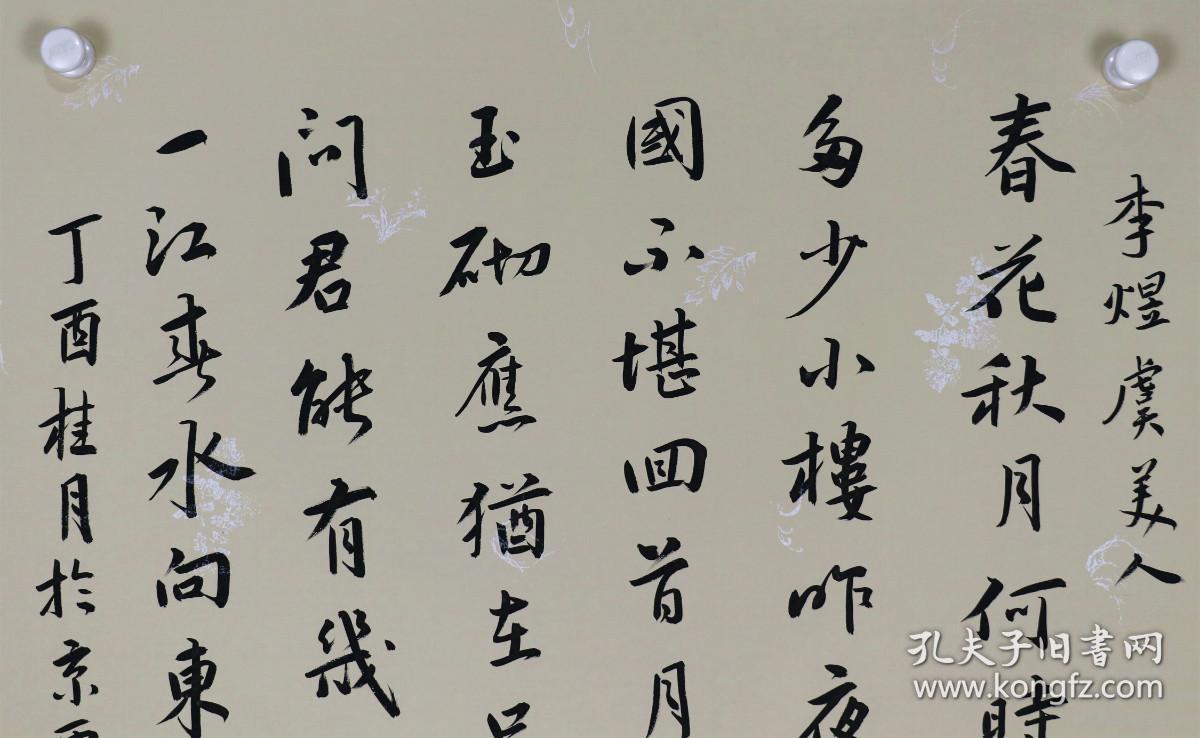 李煜虞美人
春花秋月何時
多少小樓昨夜
國不堪回首月
玉砌應猶在只
問君能有幾
一江春水向東
丁酉桂月於京西
孔夫子旧書网
www.kongfz.com